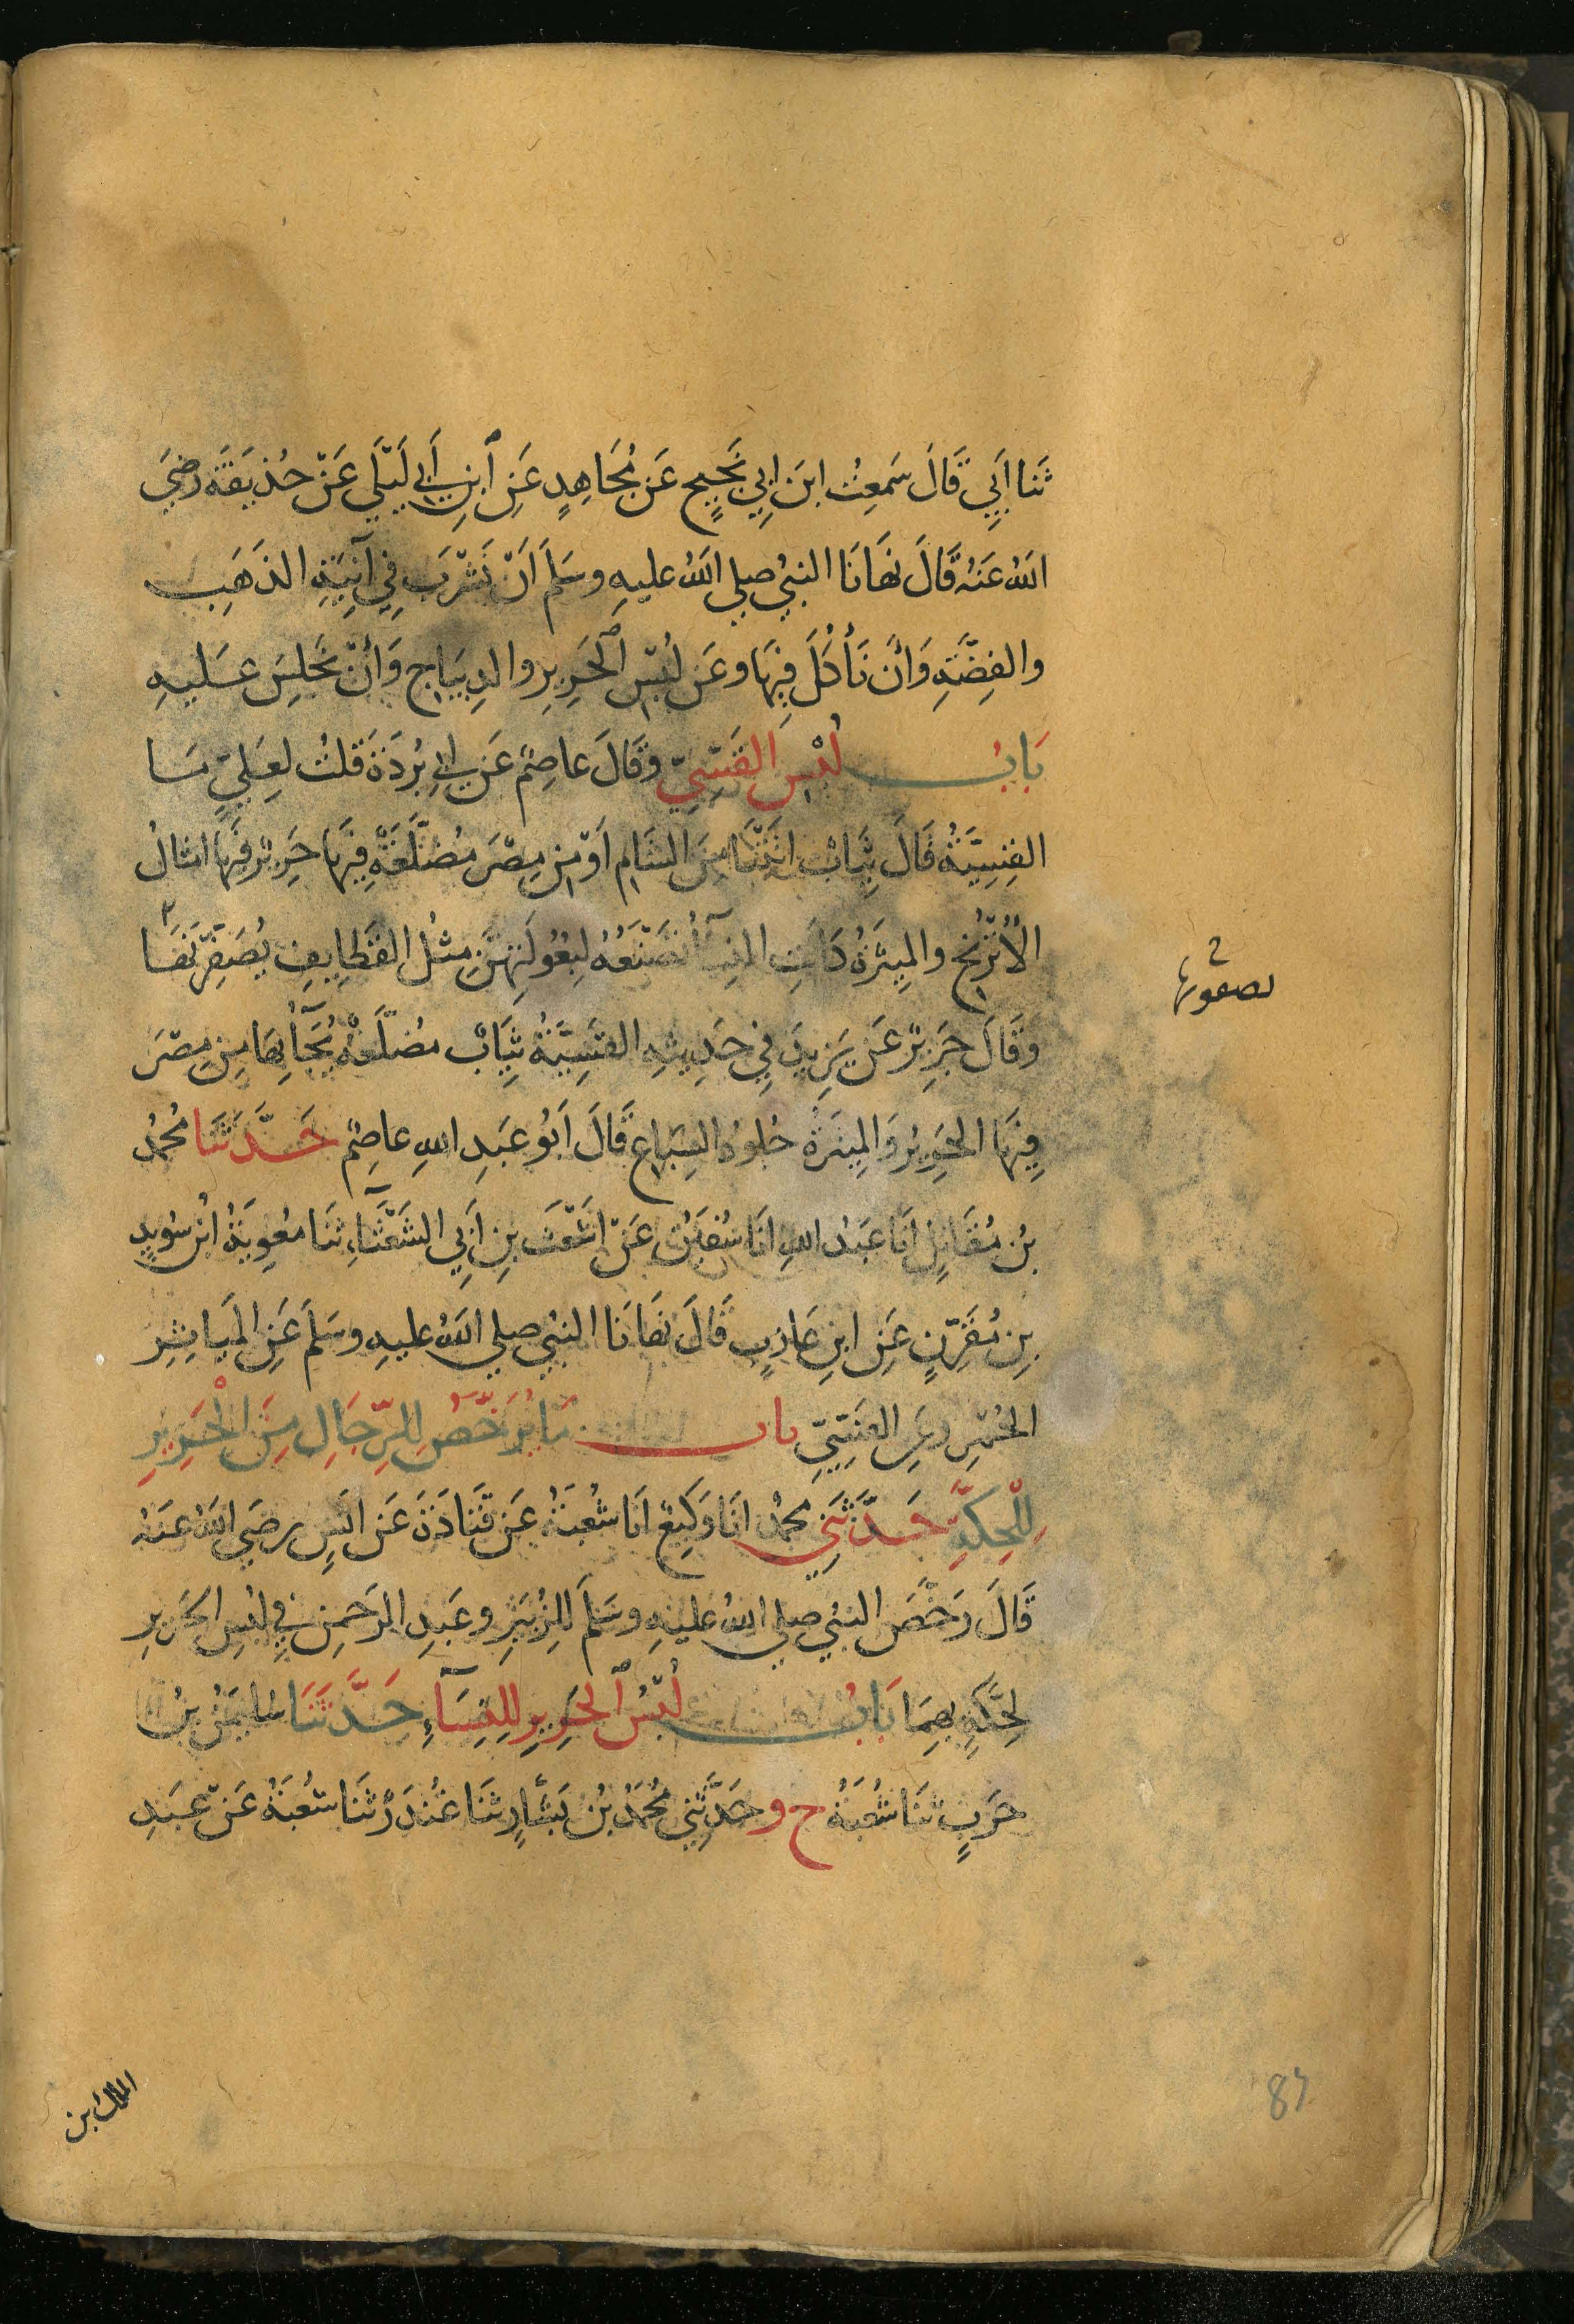 ثَنا اَبِي قَالَ سَمِعتُ ابنَ اَبِي نَجِيحٍ عَن مُجَاهِدٍ عَنِ ابنِ اَبي لَيلَي عَن حُذيفَة رضِيَ
اللهُ عَنهُ قَالَ نهَانَا النبيُ صلي اللهُ عليهِ وسَلمَ اَن نَشرَبَ فِي آنِيَةِ الذَهَبِ
والفِضَّةِ وَاَن نَأكُلَ فِيهَا وعَن لُبسِ الحَرِيرِ والدِيبَاجِ وَاَن نَجلِسَ عَليهِ
بَابُ لُبْسِ القَسِّيِّ وقَالَ عاصِمٌ عَن اَبِي بُردَةَ قلتُ لعَلِيٍّ مَا
القِسِيَّةُ قَالَ ثِيَابٌ اتَتْنَا مِنَ الشَامِ اَو مِن مِصرَ مُضَلَّعَةٌ فِيهَا حَرِيرٌ فيهَا امثالُ
الاُترُنجِ والمِيثَرَةُ كَانتِ النِسَآءُ تَصنَعُهُ لِبُعُولَتِهِنَّ مِثلُ القَطايِفِ يُصَفِّرنَهَا
وقَالَ جَرِيرٌ عَن يَزِيدَ فِي حَدِيثِهِ القَسِيَّةُ ثِيَابٌ مُضلَّعَةٌ يُجَآءُ بِهَا مِن مِصرَ
فِيهَا الحَرِيرُ وَالمِيثَرَةُ جُلودُ السِبَاعِ قَالَ اَبُو عَبدِ اللهِ عاصِمٌ حَدَّثَنَا مُحمدُ
بنُ مُقَاتِلٍ اَنَا عَبدُ اللهِ انَا سُفيَنُ عَن اَشعَثَ بنِ اَبِي الشَعثَآءِ ثنَا مُعوِيَةُ ابنُ سُويدِ
بنِ مُقَرِّنٍ عَنِ ابنِ عَازِبٍ قَالَ نَهَانَا النبيُ صلي اللهُ عليهِ وسَلمَ عَنِ المَياثِرِ
الحُمرِ وعَنِ القَسِّيِّ باب مَا يُرَخَّصُ لِلرِّجَالِ مِنَ الْحَرِيرِ
لِلْحِكَّةِ حَدَّثَنِي محمدٌ انَا وَكِيعٌ اَنَا شُعبَةُ عَن قَتَادَةَ عَن اَنَسٍ رضِيَ اللهُ عَنهُ
قَالَ رَخَّصَ النبيُ صلي اللهُ عليهِ وسَلمَ للزُبَيرِ وعَبدِ الرَحمنِ فِي لبُسِ الحَرِيرِ
لِحِكَّةٍ بِهِمَا بَابُ لُبسِ الحَرِيرِ لِلنِسَآءِ حَدَّثَنَا سُليمَنُ بنُ
حَربٍ ثنَا شُعبَةُ ح وحَدَّثَنِي مُحَمَدُ بنُ بَشَّارٍ ثنَا غُندَرٌ ثنَا شُعبَةُ عَن عَبدِ
يصفونها
الملك بن
87